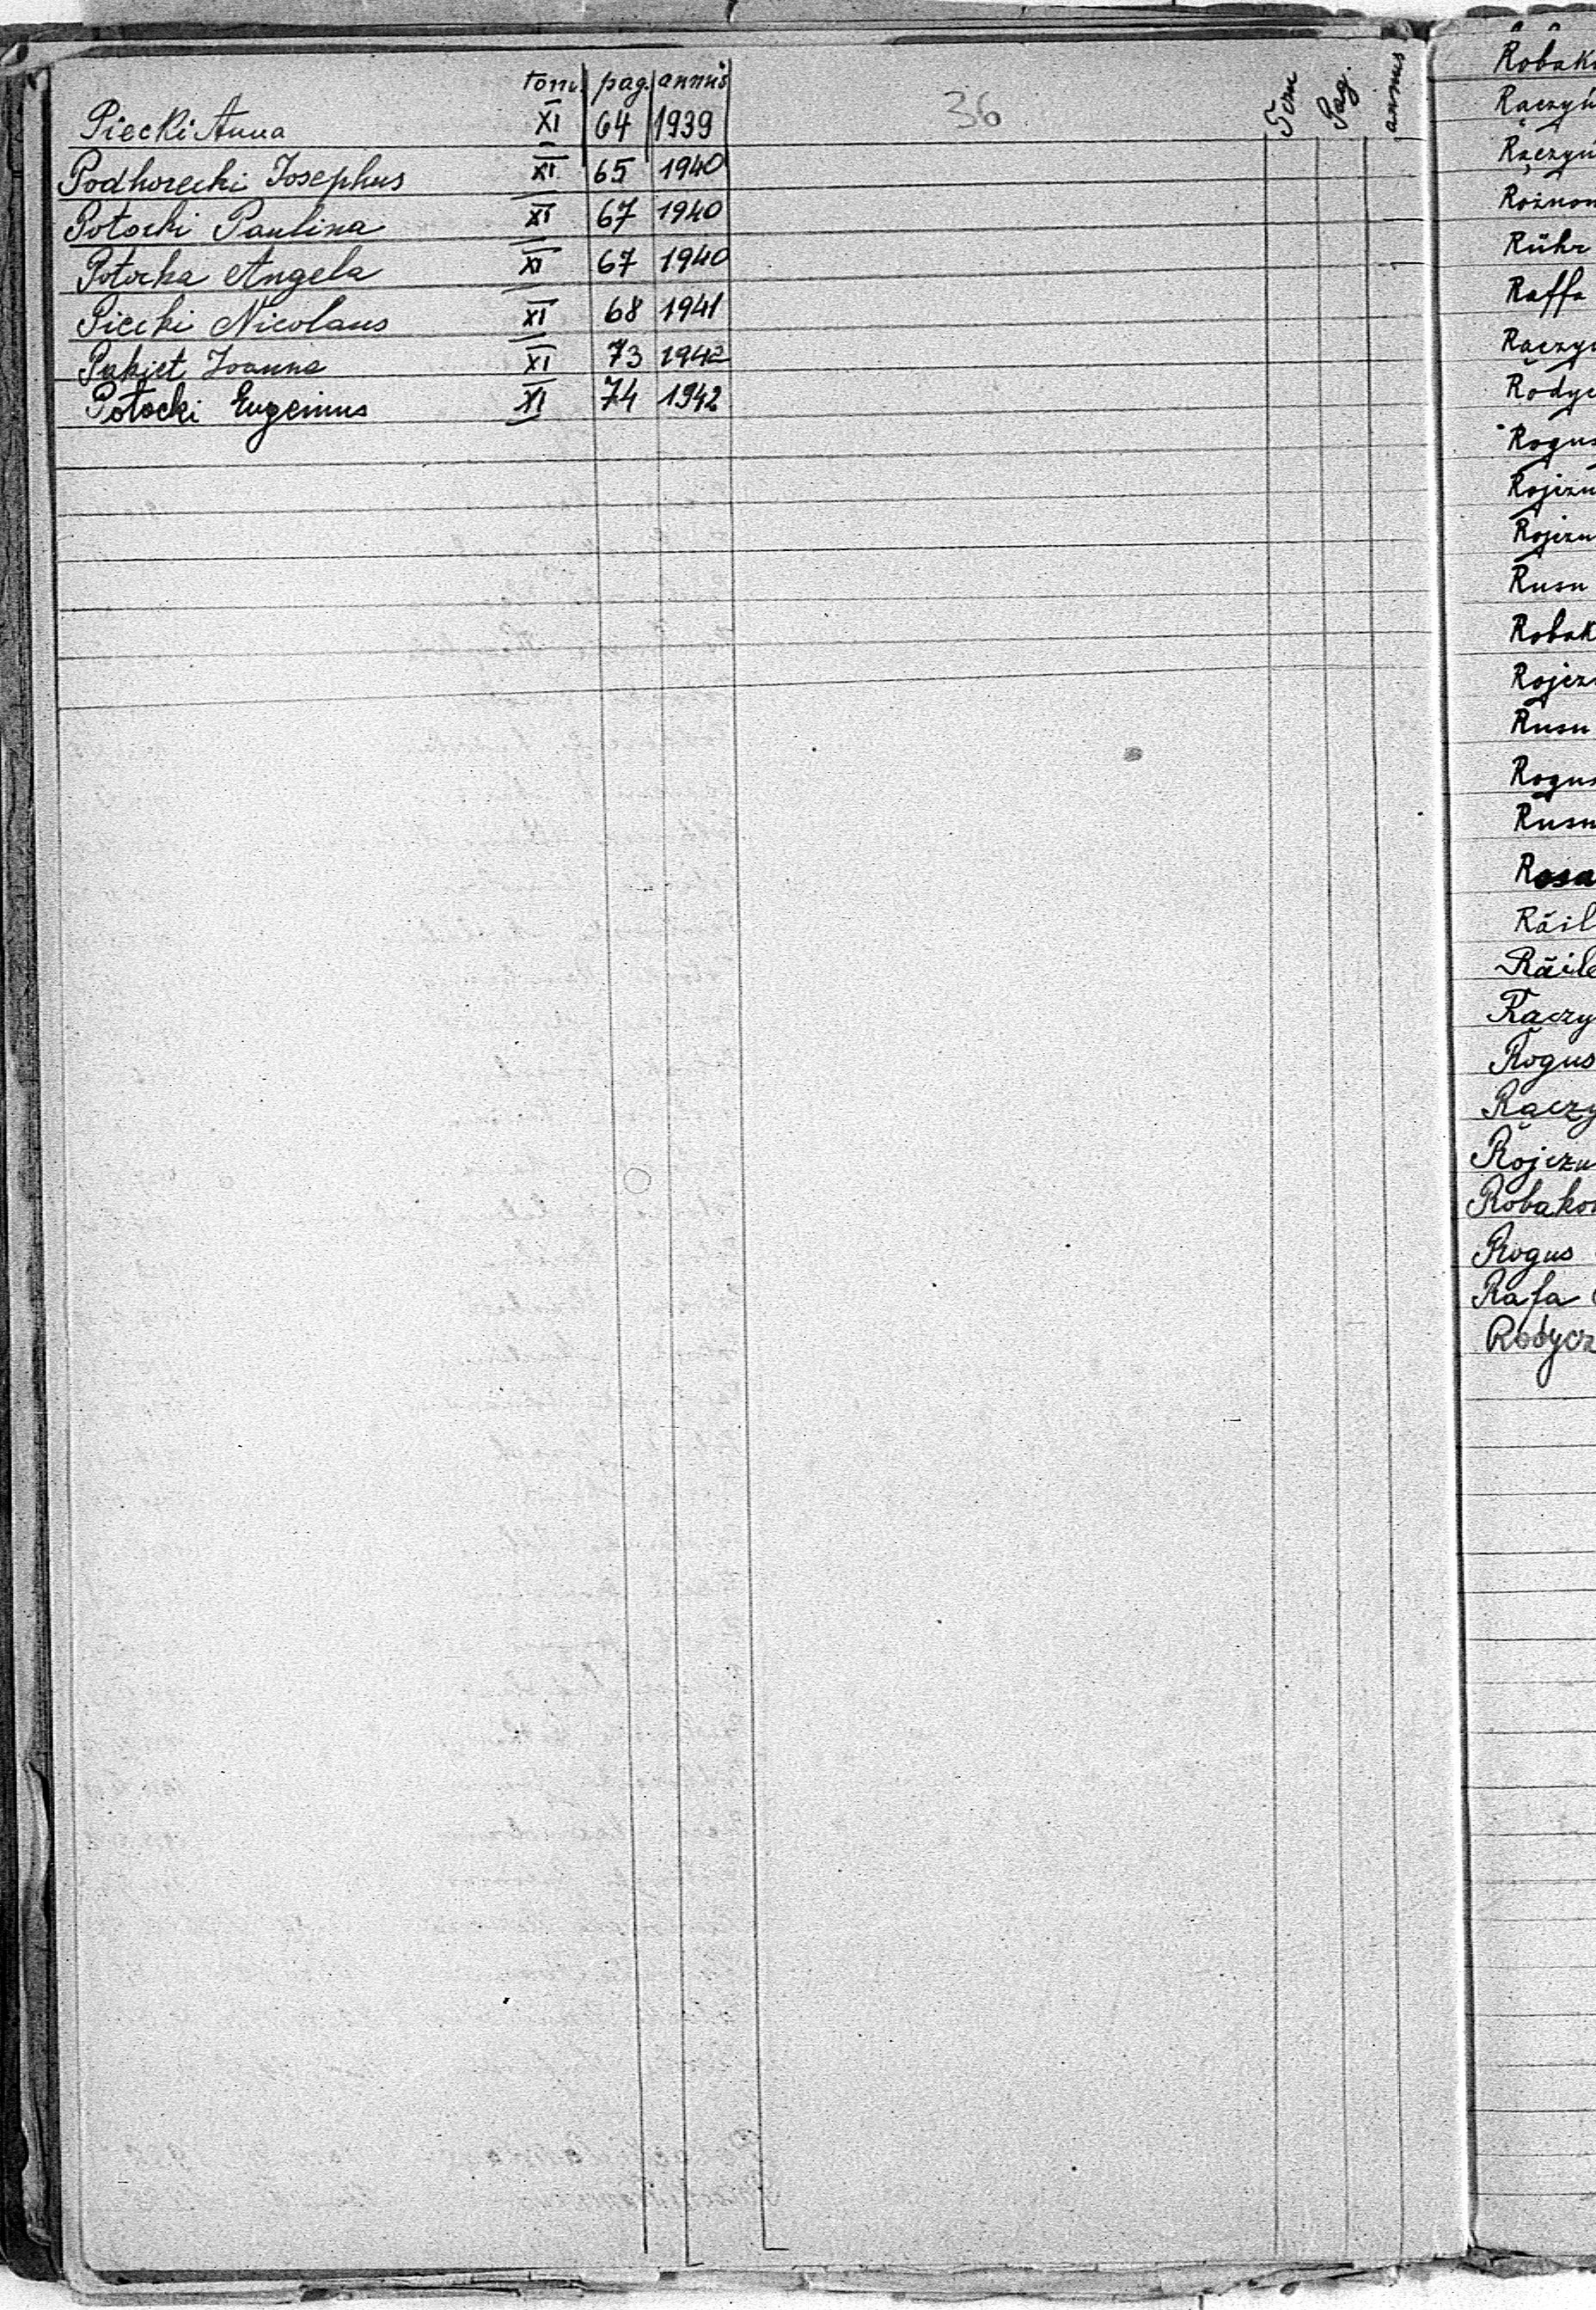 tom. pag. annus
Piecki Anna XI 64 1939
Podhorecki Josephus XI 65 1940
Potocki Paulina XI 67 1940
Potocka Angela XI 67 1940
Piecki Nicolaus XI 68 1941
Pakiet Joanna XI 73 1942
Potocki Eugenius XI 74 1942
36
Tom Pag. annus
Robak
Raczyń
Raczyń
Rühr
Raffa
Raczy
Rodyc
Rogus
Rojczn
Rojczn
Rusu
Robak
Rojcz
Rusu
Rogus
Rusu
Răil
Răile
Raczy
Rogus
Raczy
Rojczn
Robako
Rogus
Rafa
Rodycz